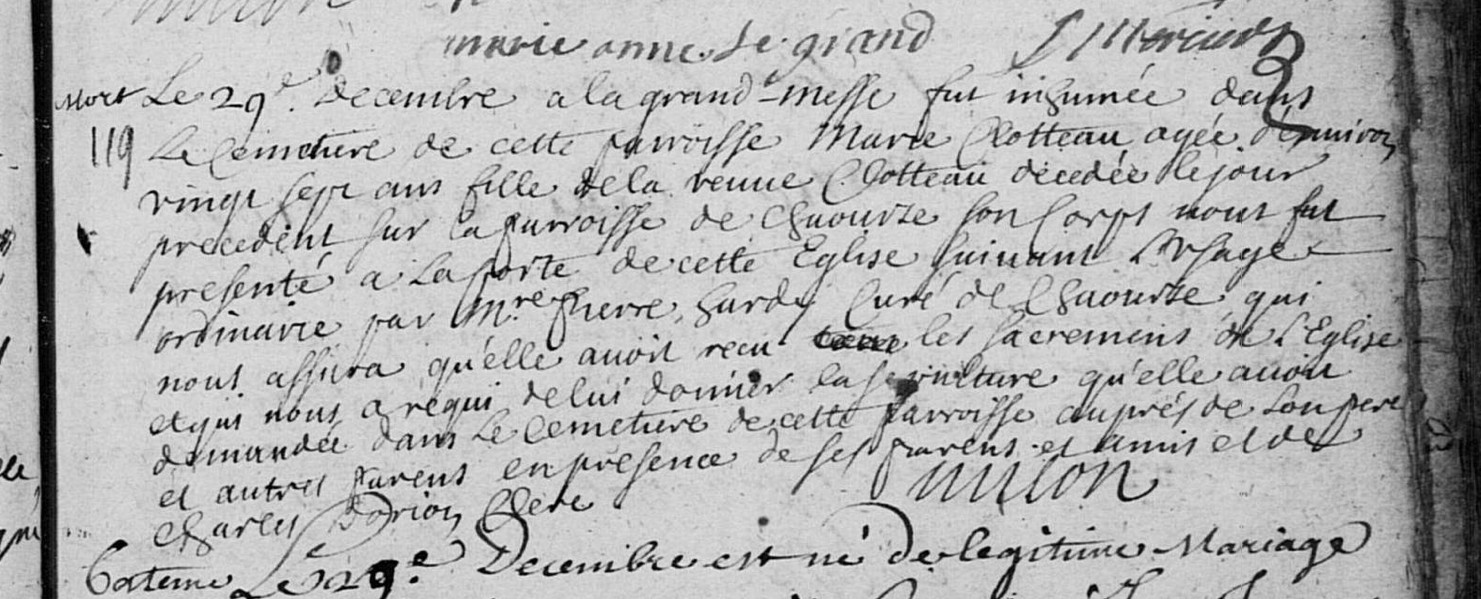 marie anne Le grand
Mort Le 29e. Decembre a la grand-messe fut inhumée dans
119 Le Cemetiere de cette parroisse Marie Clotteau agée d'environ
vingt sept ans fille de la veuue Clotteau decedée le jour
precedent sur la parroisse de Chaourse son Corps nous fut
presenté a La porte de cette Eglise suiuant L'vsage
ordinaire par Mre. Pierre hardy Curé de Chaourse qui
nous assura qu'elle auoit recu les sacremens de L'Eglise
et qui nous a requi de lui donner la sepulture qu'elle auoit
demandée dans Le Cemetiere de cette parroisse auprés de son pere
et autres parens en presence de ses parens et amis et de
Charles Dorion Clerc
Batême Le 29e. Decembre est né de legitime Mariage